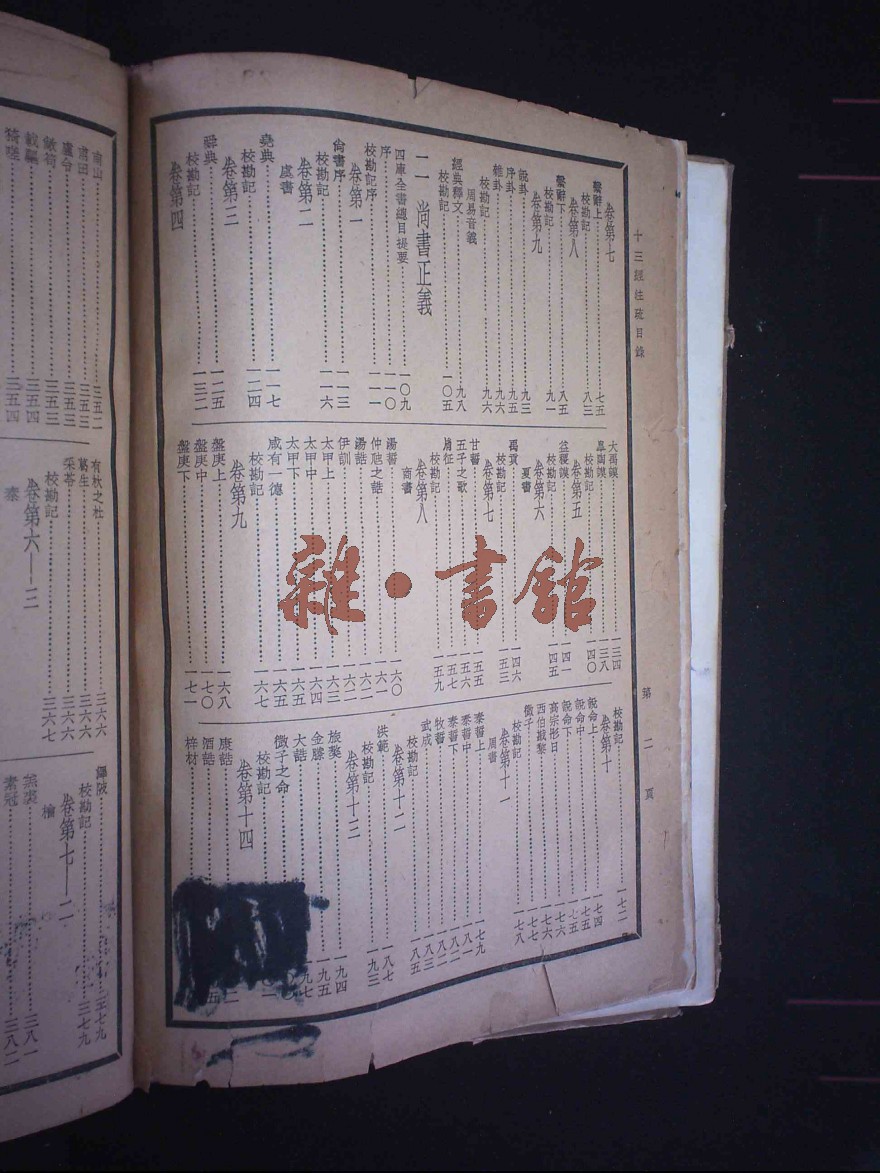 十三經注疏目錄
第二頁
卷第七
繫辭上……七五
校勘記……八三
卷第八
繫辭下……八五
校勘記……九一
卷第九
說卦……九三
序卦……九五
雜卦……九六
校勘記……九六
周易音義
經典釋文……九八
校勘記……一〇五
二 尚書正義
四庫全書總目提要……一〇九
序……一一〇
校勘記序……一一一
卷第一
尙書序……一一三
校勘記……一一六
卷第二
虞書
堯典……一一七
校勘記……一二四
卷第三
舜典……一二五
校勘記……一三二
卷第四
大禹謨……一三四
皋陶謨……一三八
校勘記……一四〇
卷第五
益稷謨……一四一
校勘記……一四五
卷第六
夏書
禹貢……一四六
校勘記……一五三
卷第七
甘誓……一五五
五子之歌……一五六
胤征……一五七
校勘記……一五九
卷第八
商書
湯誓……一六〇
仲虺之誥……一六一
湯誥……一六二
伊訓……一六二
太甲上……一六三
太甲中……一六四
太甲下……一六五
咸有一德……一六五
校勘記……一六七
卷第九
盤庚上……一六八
盤庚中……一七〇
盤庚下……一七一
校勘記……一七二
卷第十
說命上……一七四
說命中……一七五
說命下……一七五
高宗肜日……一七六
西伯戡黎……一七六
微子……一七七
校勘記……一七八
卷第十一
周書
泰誓上……一七九
泰誓中……一八一
泰誓下……一八二
牧誓……一八二
武成……一八三
校勘記……一八五
卷第十二
洪範……一八七
校勘記……一九三
卷第十三
旅獒……一九四
金縢……一九五
大誥……一九七
微子之命
校勘記
卷第十四
康誥
酒誥
梓材
南山……三五二
甫田……三五三
盧令……三五三
敝笱……三五三
載驅……三五四
猗嗟……三五四
有杕之杜……三六六
葛生……三六六
采苓……三六六
校勘記……三六七
卷第六—三
秦
隰陂……三七九
校勘記……三七九
卷第七—二
檜
羔裘……三八一
素冠……三八二
雜·書館